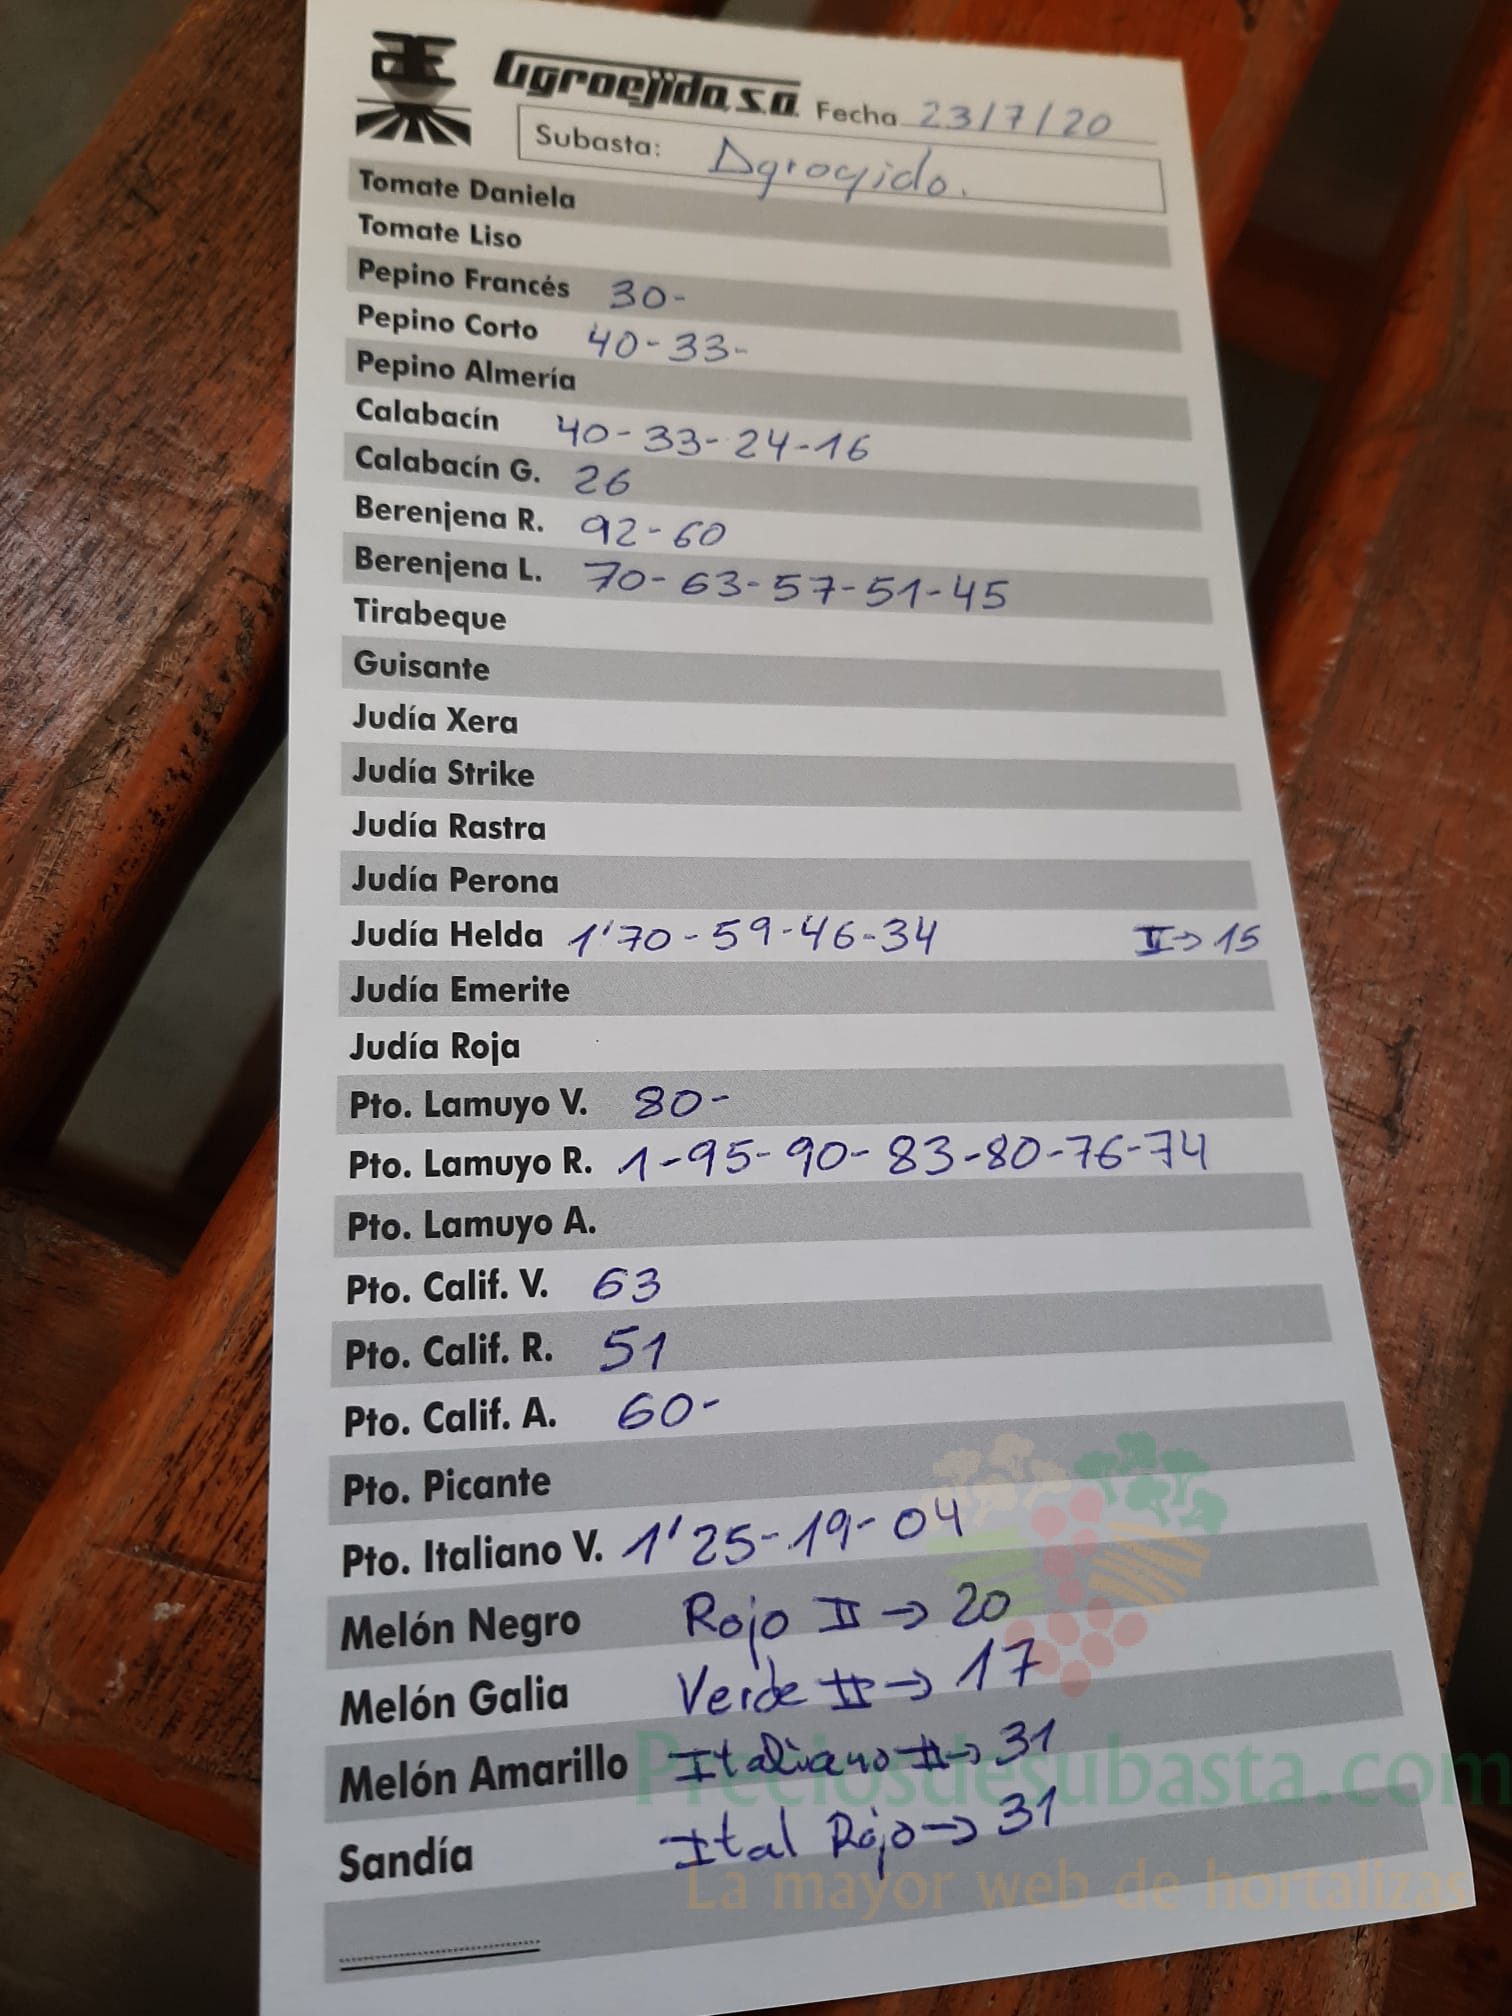 Agroejida, S.A. Fecha 23/7/20
Subasta: Agroejido.
Tomate Daniela
Tomate Liso
Pepino Francés 30-
Pepino Corto 40-33-
Pepino Almería
Calabacín 40-33-24-16
Calabacín G. 26
Berenjena R. 92-60
Berenjena L. 70-63-57-51-45
Tirabeque
Guisante
Judía Xera
Judía Strike
Judía Rastra
Judía Perona
Judía Helda 1'70-59-46-34 II→15
Judía Emerite
Judía Roja
Pto. Lamuyo V. 80-
Pto. Lamuyo R. 1-95-90-83-80-76-74
Pto. Lamuyo A.
Pto. Calif. V. 63
Pto. Calif. R. 51
Pto. Calif. A. 60-
Pto. Picante
Pto. Italiano V. 1'25-19-04
Melón Negro Rojo II→20
Melón Galia Verde II→17
Melón Amarillo Italiano II→31
Preciosdesubasta.com
Sandía Ital Rojo→31
La mayor web de hortalizas